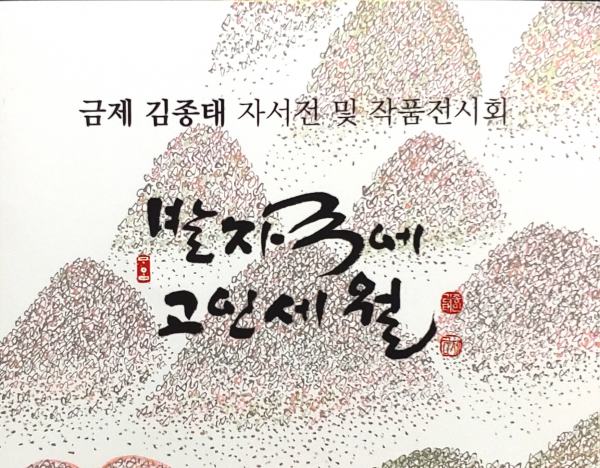 금제 김종태 자서전 및 작품전시회
발자국에
고인 세월